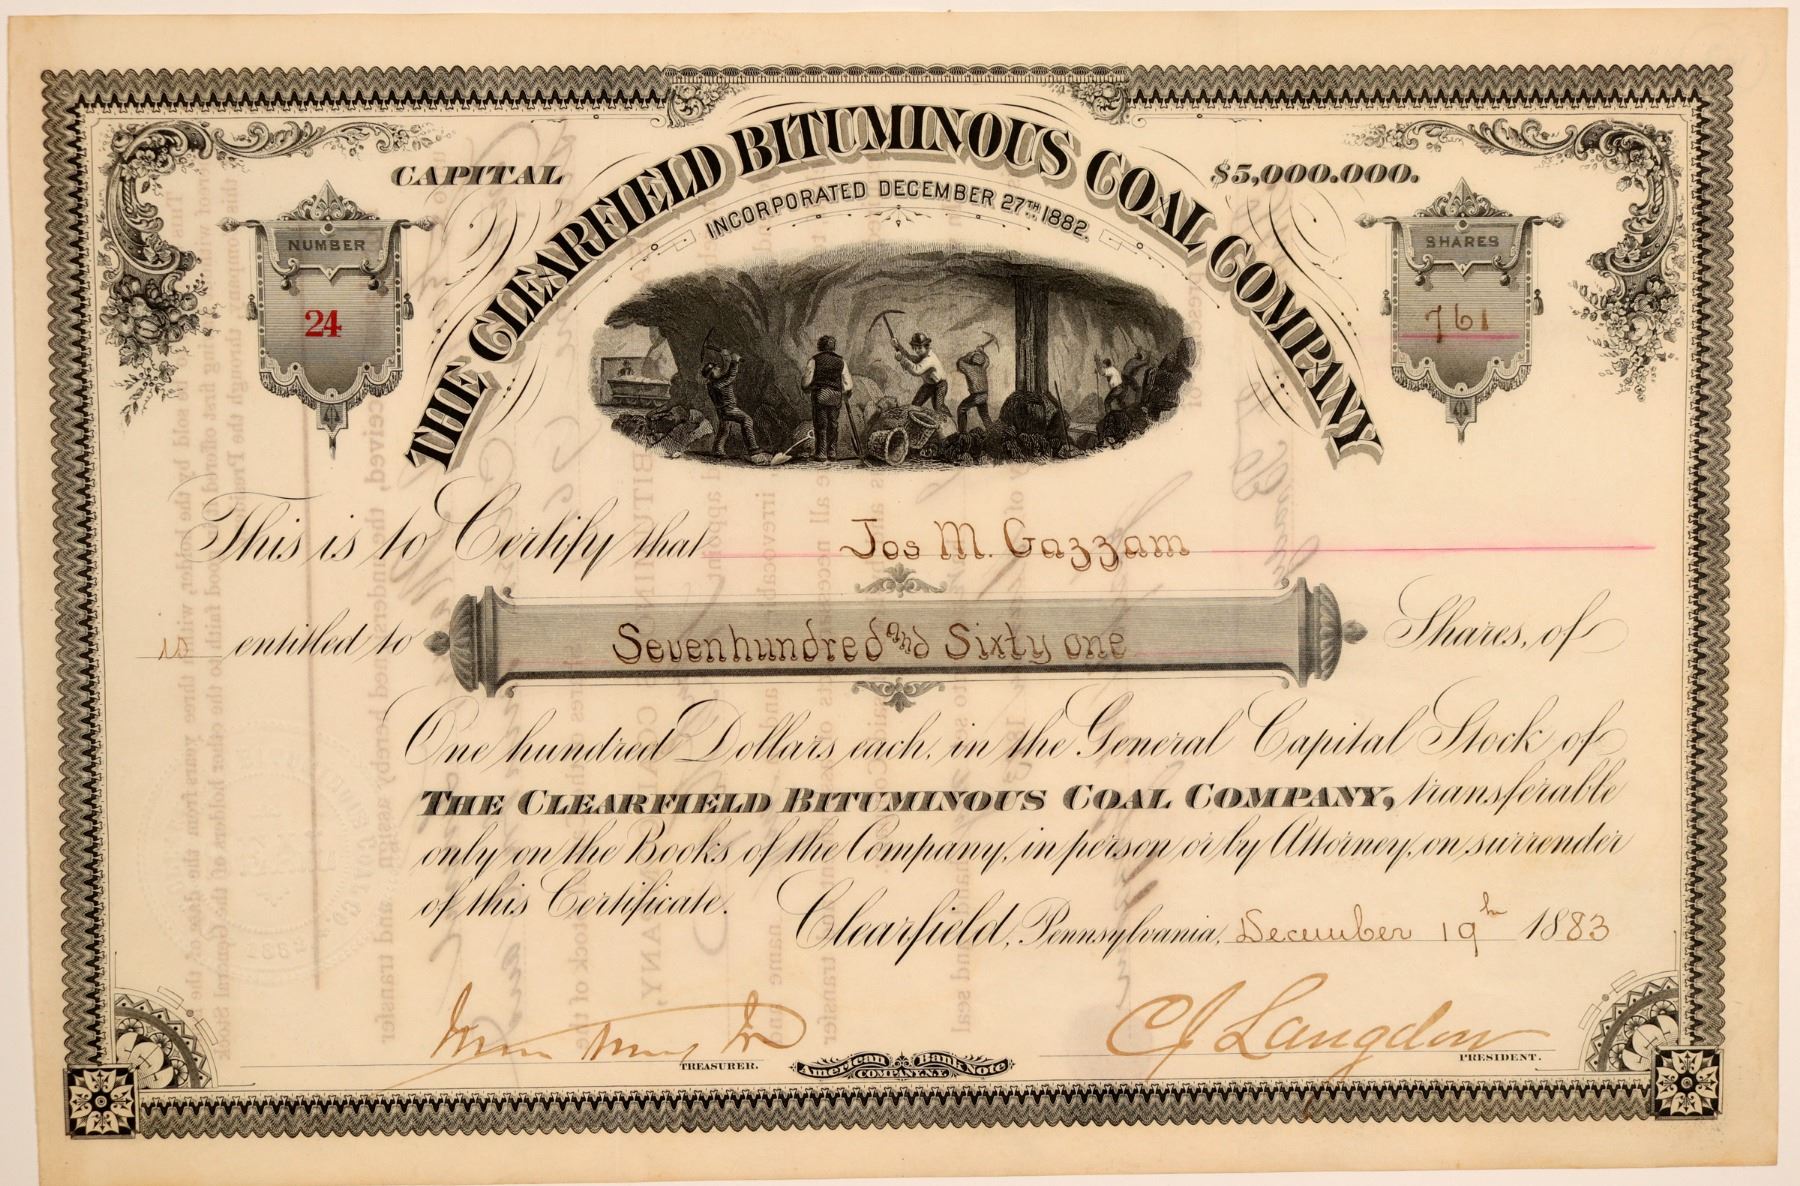 CAPITAL
$5,000.000.
THE CLEARFIELD BITUMINOUS COAL COMPANY
INCORPORATED DECEMBER 27TH 1882.
NUMBER
24
SHARES
761
This is to Certify that Jos M. Gazzam
is entitled to Seven hundred and Sixty one Shares, of
One hundred Dollars each, in the General Capital Stock of
THE CLEARFIELD BITUMINOUS COAL COMPANY, transferable
only on the Books of the Company, in person or by Attorney, on surrender
of this Certificate.
Clearfield, Pennsylvania, December 19th 1883
C J Langdon
TREASURER.
American Bank Note
COMPANY N.Y.
PRESIDENT.